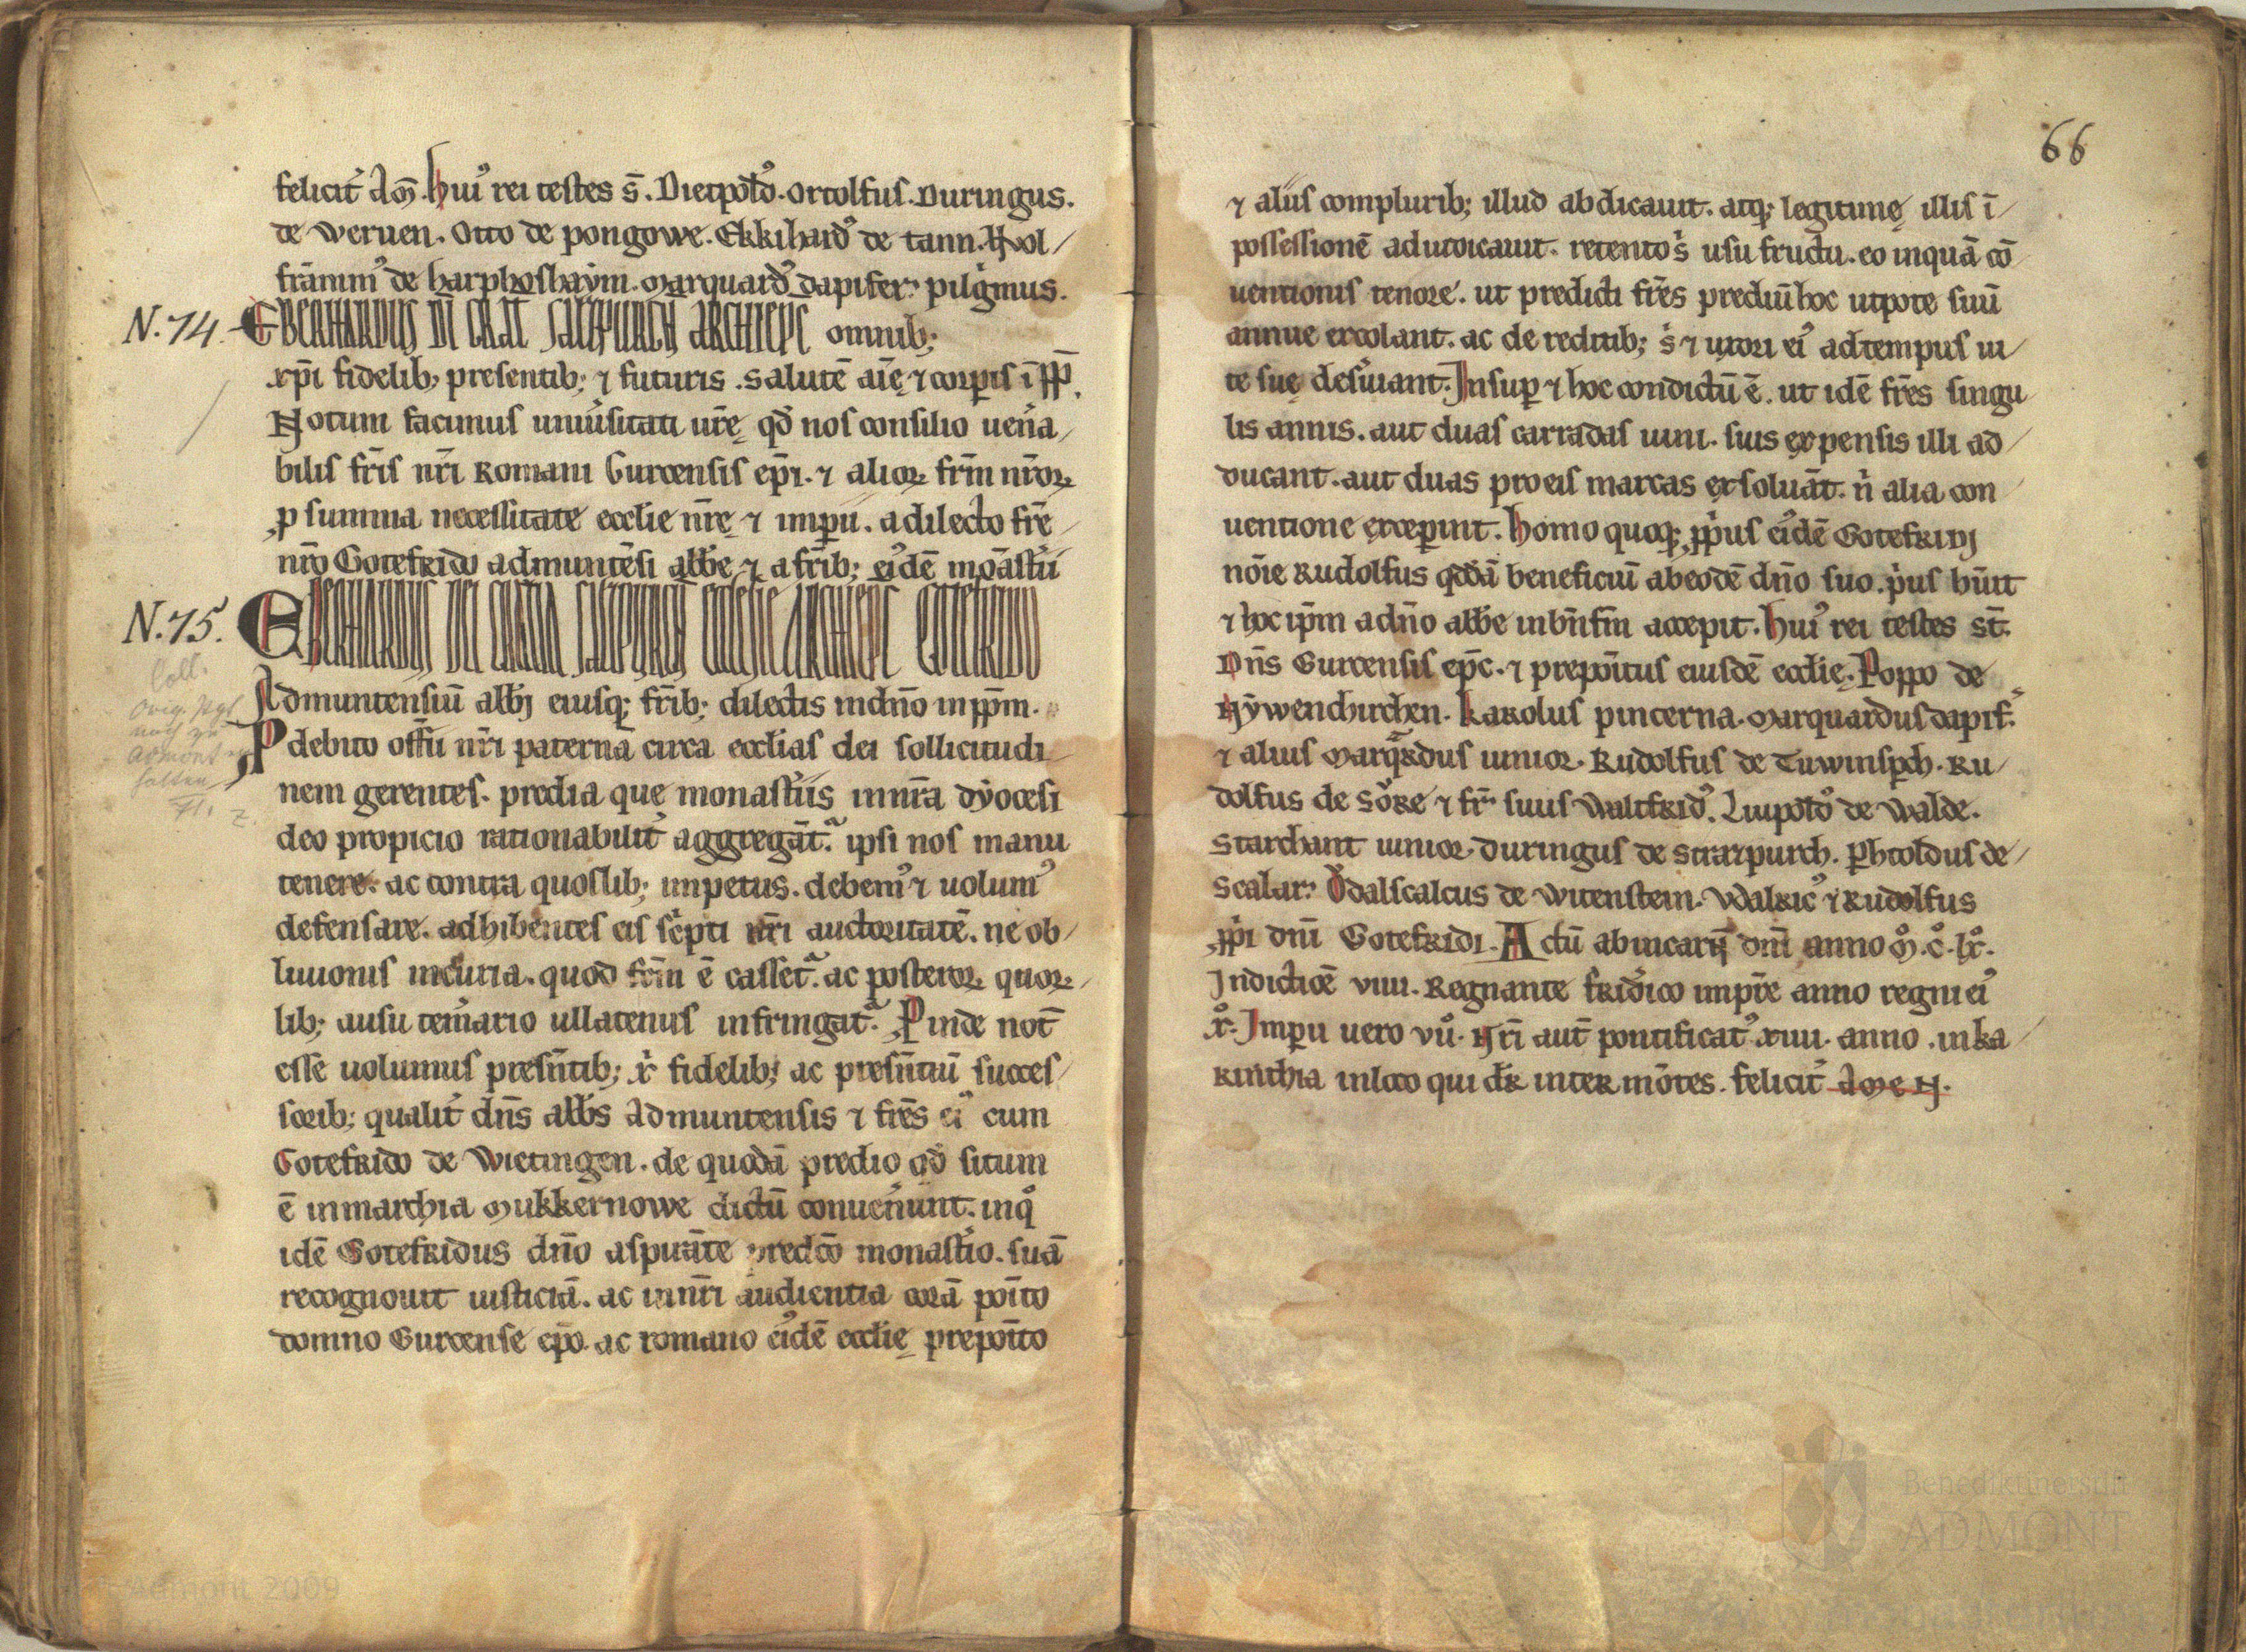 felicit̓ am̄. hui᷒ rei testes s̄. Dietpold᷒. Ortolfus. Duringus.
de Weruen. Otto de pongowe. Ekkihard᷒ de tann. Wol/
frāmm᷒ de harphoshaẏm. Marquard᷒ dapifer. pilg̓mus.
N. 74. EBERHARDUS DĪ GRAT̄ SALZPURGN̄ ARCHIEPC omnib;
xp̄i fidelib; presentib; ⁊ futuris. Salutē aīe ⁊ corꝑis ī ꝑp̄.
Notum facimus uniu̓sitati ur̄ę qd̓ nos consilio uen̓a/
bilis fr̄is nr̄i Romani Gurcensis ep̄i. ⁊ alioꝝ fr̄m nr̄oꝝ
ꝓ summa necessitate eccl̄ie nr̄ę ⁊ imꝑii. a dilecto fr̄e
nr̄o Gotefrido admuntēsi abb̄e ⁊ a fr̄ib; ei᷒dē moāst̓ii
N. 75. EBERHARDUS DEI GRATIA SALZPURGN̄ ECCLESIE ARCHIEPC GOTEFRIDO
Admuntensiū abb̄i eiusq; fr̄ib; dilectis in dn̄o inꝑp̄m.
Ꝓ debito off̄ii nr̄i paternā circa eccl̄ias dei sollicitudi/
nem gerentes. predia que monast̓iis in nr̄a dẏocesi
deo propicio rationabilit̓ aggregāt᷑. ipsi nos manu
tenere. ac contra quoslib; impetus. debem᷒ ⁊ uolum᷒
defensare. adhibentes eis sc̓pti nr̄i auctoritatē. ne ob/
liuionis incuria. quod fc̄m ē casset᷑. ac posteroꝝ quoꝝ/
lib; ausu tem̓ario ullatenus infringat᷑. Ꝓinde not̄
esse uolumus presn̄tib; x̓ fidelib; ac presn̄tiū succes/
sorib; qualit̓ dn̄s abb̄s Admuntensis ⁊ fr̄es ei᷒ cum
Gotefrido de Wietingen. de quodā predio qd̓ situm
ē in marchia Mukkernowe dictū conuen̓unt. in qͦ
idē Gotefridus dn̄o aspirāte predc̄o monast̓io. suā
recognouit iusticiā. ac in nr̄i audientia corā poīto
domno Gurcense ep̄o. ac romano ei᷒dē eccl̄ię prepoīto
66
⁊ aliis complurib; illud abdicauit. atq; legitimę illis ī/
possessionē adiudicauit. retento s̓ usu fructu. eo inquā cō
uentionis tenore. ut predicti fr̄es prediū hoc utpote suū
annue excolant. ac de redditib; s̓ ⁊ uxori ei᷒ ad tempus ui/
te suę des̓uiant. Insuꝑ ⁊ hoc condictū ē. ut idē fr̄es singu
lis annis. aut duas carradas uini. suis expensis illi ad/
ducant. aut duas pro eis marcas exsoluāt. n̓ alia con/
uentione exceꝑint. Homo quoq; ꝓp̓us ei᷒dē Gotefridi
nōie Rudolfus qd̓dā beneficiū ab eodē dn̄o suo. p̓us hūit
⁊ hoc ip̄m a dn̄o abb̄e in bn̄fm̄ accepit. Hui᷒ rei testes st̄.
Dn̄s Gurcensis ep̄c. ⁊ prepoītus eiusdē eccl̄ię. Poppo de
Nẏwenchirchen. Karolus pincerna. Marquardus dapif̓.
⁊ alius Marqͣrdus iunior. Rudolfus de Tuwinsꝑch. Ru/
dolfus de Sore ⁊ fr̄ suus Waltfrid᷒. Liupold᷒ de Walde.
Starchant iunior. Duringus de Strazpurch. Ꝑhtoldus de/
Scalar. Ǒdalscalcus de Witenstein. Walric᷒ ⁊ Rudolfus
ꝓp̓i dn̄i Gotefridi. Actū ab incarn̄ dn̄i anno M̊. C̊. Lx̊.
Indictiōe viiii. Regnante frid̓ico imp̄re anno regni ei᷒
x̊. Imꝑii uero vii̊. Nr̄i aut̄ pontificat᷒ xiiii. anno. in ka/
rinthia in loco qui dr̄ inter mōtes. felicit̓ amen.
Benediktinerstift
ADMONT
Admont 2009